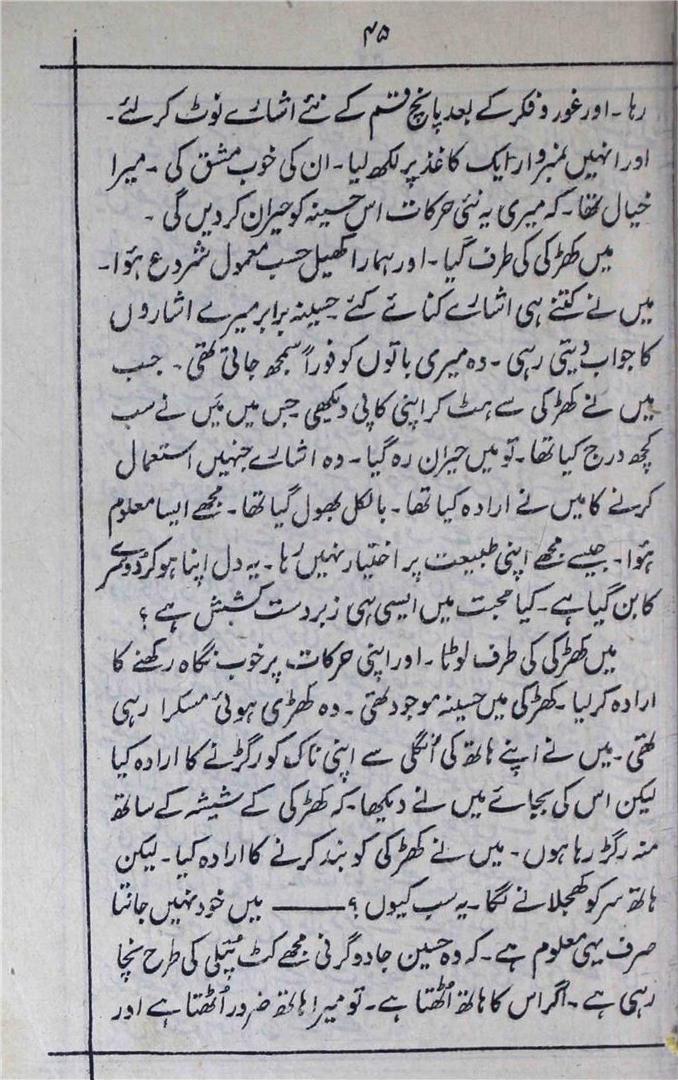 ۴۵
رہا ۔ اور غور و فکر کے بعد پانچ قسم کے نئے اشارے نوٹ کر لئے ۔
اور انہیں نمبروار ایک کاغذ پر لکھ لیا ۔ ان کی خوب مشق کی ۔ میرا
خیال تھا ۔ کہ میری یہ نئی حرکات اس حسینہ کو حیران کر دیں گی ۔
میں کھڑکی کی طرف گیا ۔ اور ہمارا کھیل حسب معمول شروع ہؤا ۔
میں نے کتنے ہی اشارے کنائے کئے حسینہ برابر میرے اشاروں
کا جواب دیتی رہی ۔ وہ میری باتوں کو فوراً سمجھ جاتی تھی ۔ جب
میں نے کھڑکی سے ہٹ کر اپنی کاپی دیکھی جس میں مَیں نے سب
کچھ درج کیا تھا ۔ تو میں حیران رہ گیا ۔ وہ اشارے جنہیں استعمال
کرنے کا میں نے ارادہ کیا تھا ۔ بالکل بھول گیا تھا ۔ مجھے ایسا معلوم
ہؤا ۔ جیسے مجھے اپنی طبیعت پر اختیار نہیں رہا ۔ یہ دل اپنا ہو کر دوسرے
کا بن گیا ہے ۔ کیا محبت میں ایسی ہی زبردست کشش ہے ؟
میں کھڑکی کی طرف لوٹا ۔ اور اپنی حرکات پر خوب نگاہ رکھنے کا
ارادہ کر لیا ۔ کھڑکی میں حسینہ موجود تھی ۔ وہ کھڑی ہوئی مسکرا رہی
تھی ۔ میں نے اپنے ہاتھ کی اُنگلی سے اپنی ناک کو رگڑنے کا ارادہ کیا
لیکن اس کی بجائے میں نے دیکھا ۔ کہ کھڑکی کے شیشہ کے ساتھ
منہ رگڑ رہا ہوں ۔ میں نے کھڑکی کو بند کرنے کا ارادہ کیا ۔ لیکن
ہاتھ سر کو کھجلانے لگا ۔ یہ سب کیوں ؟ ——— میں خود نہیں جانتا
صرف یہی معلوم ہے ۔ کہ وہ حسین جادوگرنی مجھے کٹ پُتلی کی طرح نچا
رہی ہے ۔ اگر اس کا ہاتھ اُٹھتا ہے ۔ تو میرا ہاتھ ضرور اُٹھتا ہے اور